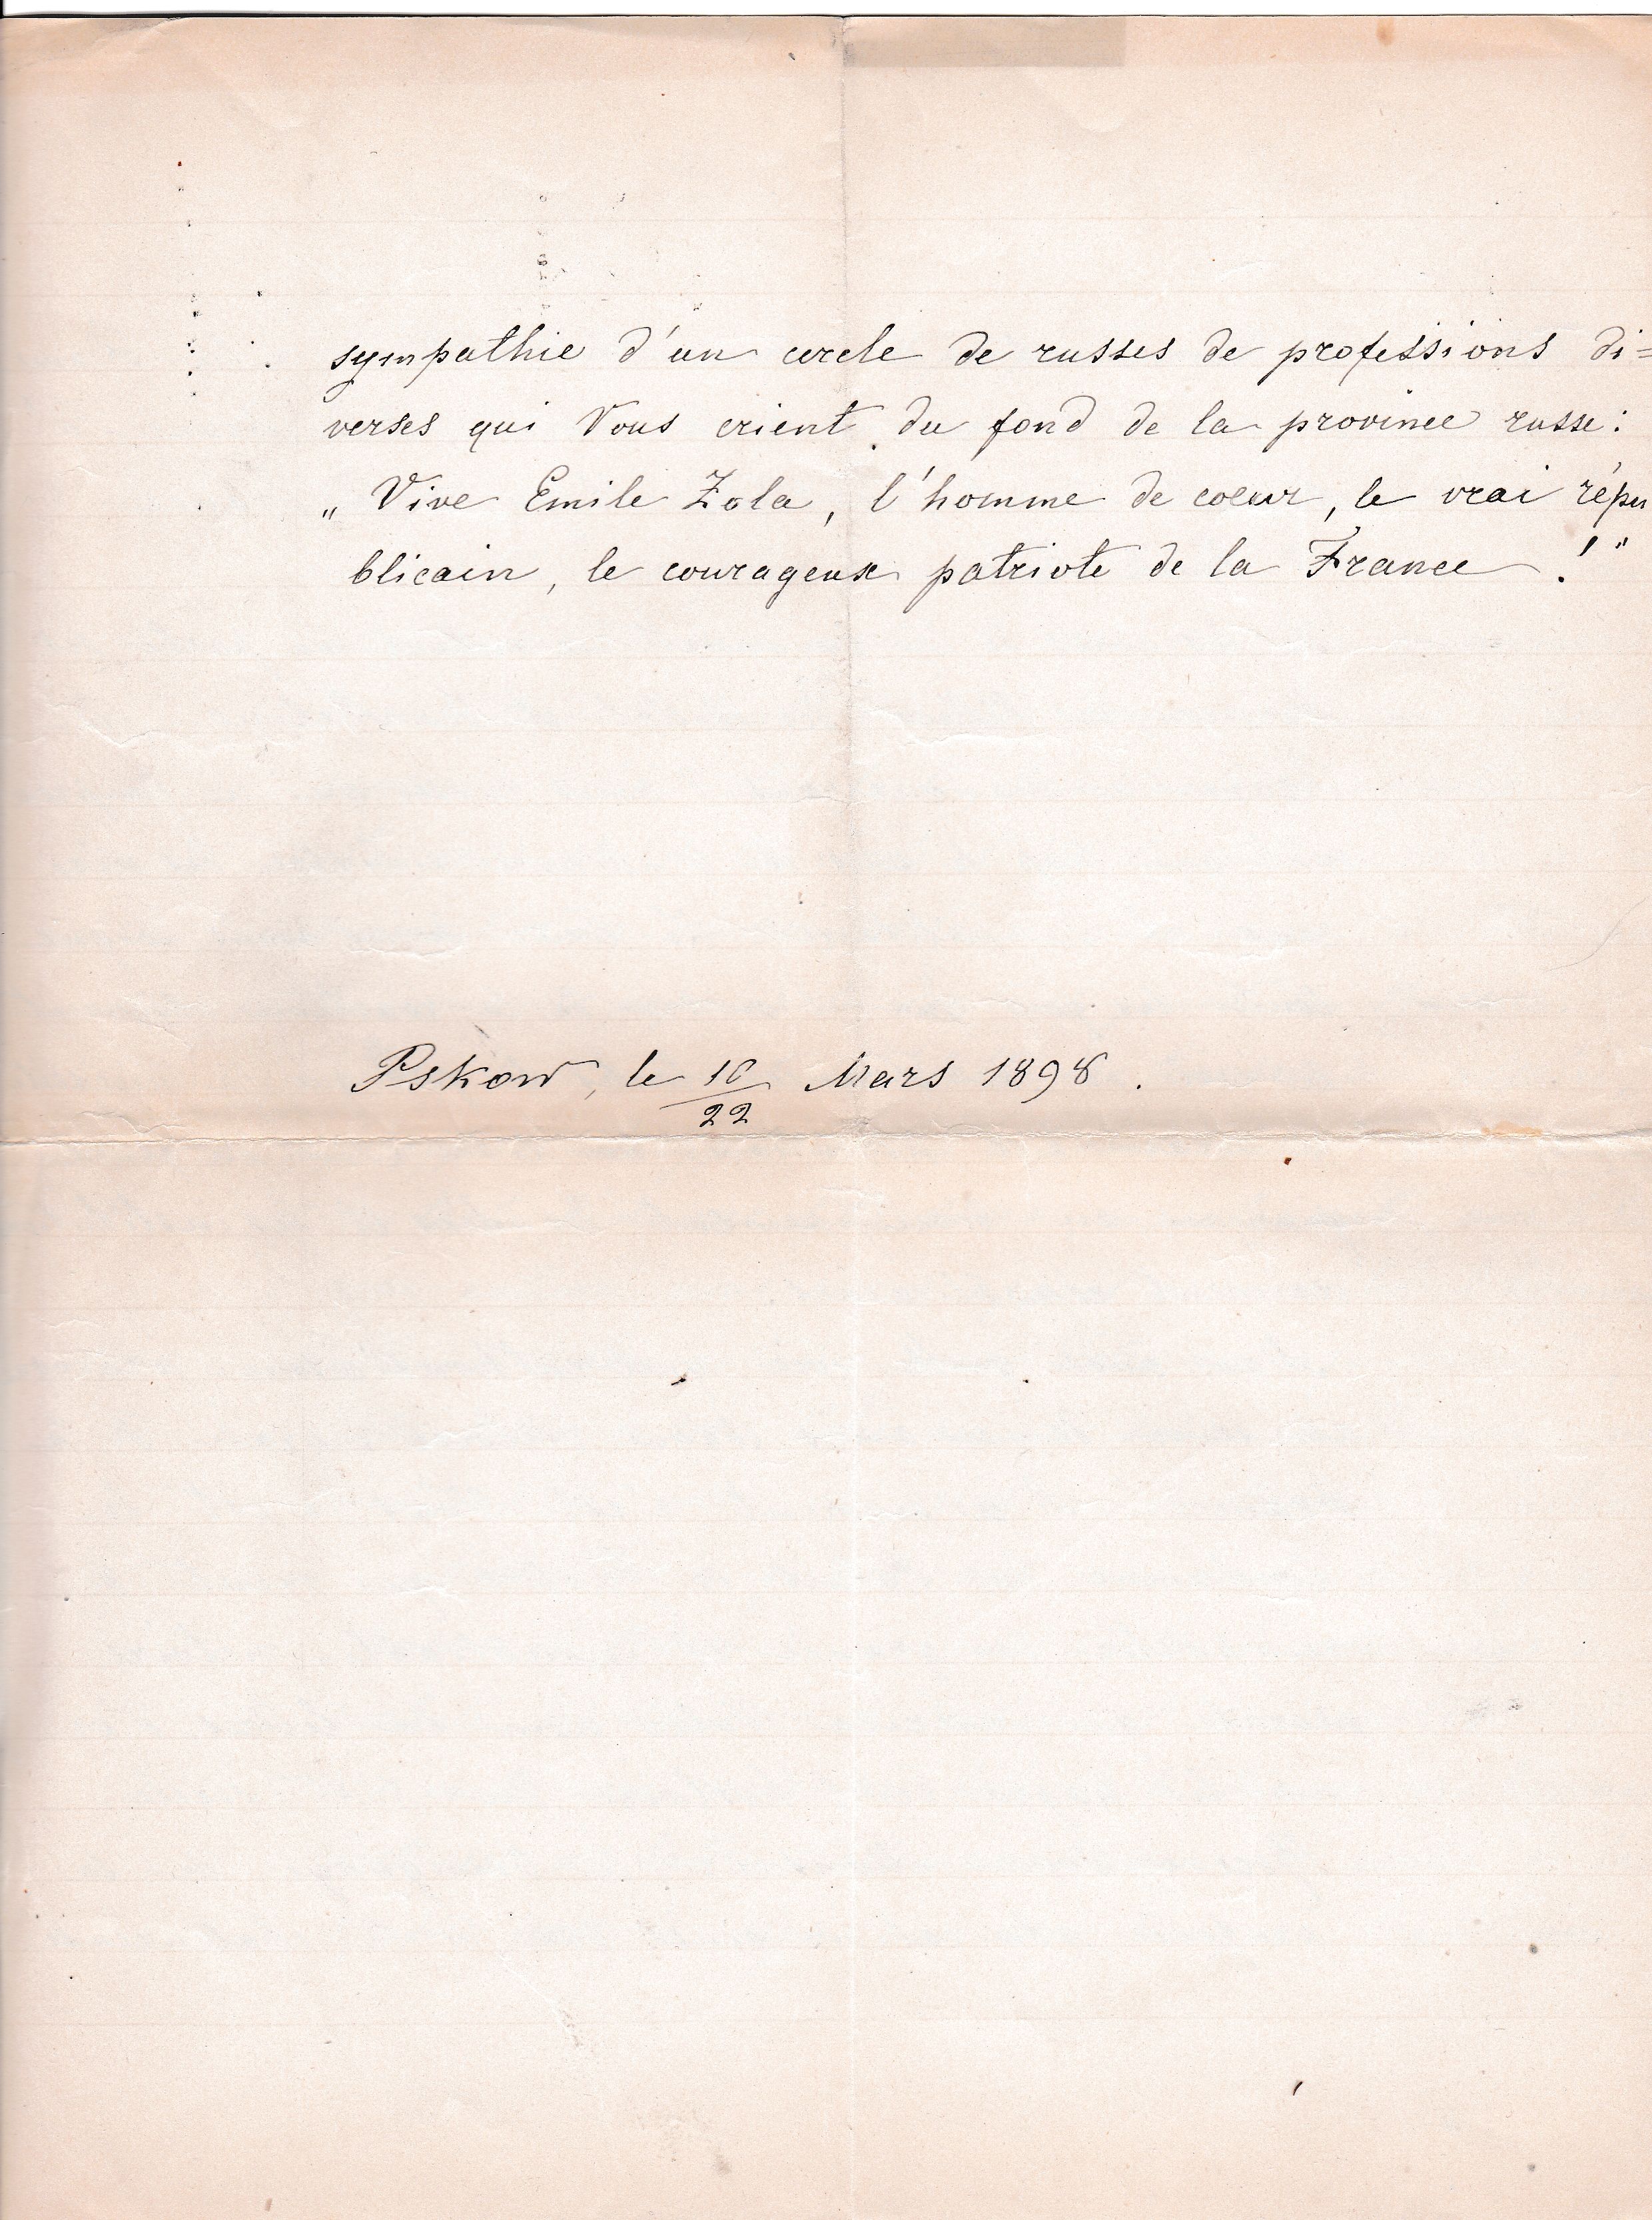 sympathie d'un cercle de russes de professions di=
verses qui Vous crient du fond de la province russe:
„Vive Emile Zola, l'homme de coeur, le vrai répu
blicain, le courageux patriote de la France !"
Pskow, le 10/22 Mars 1898.